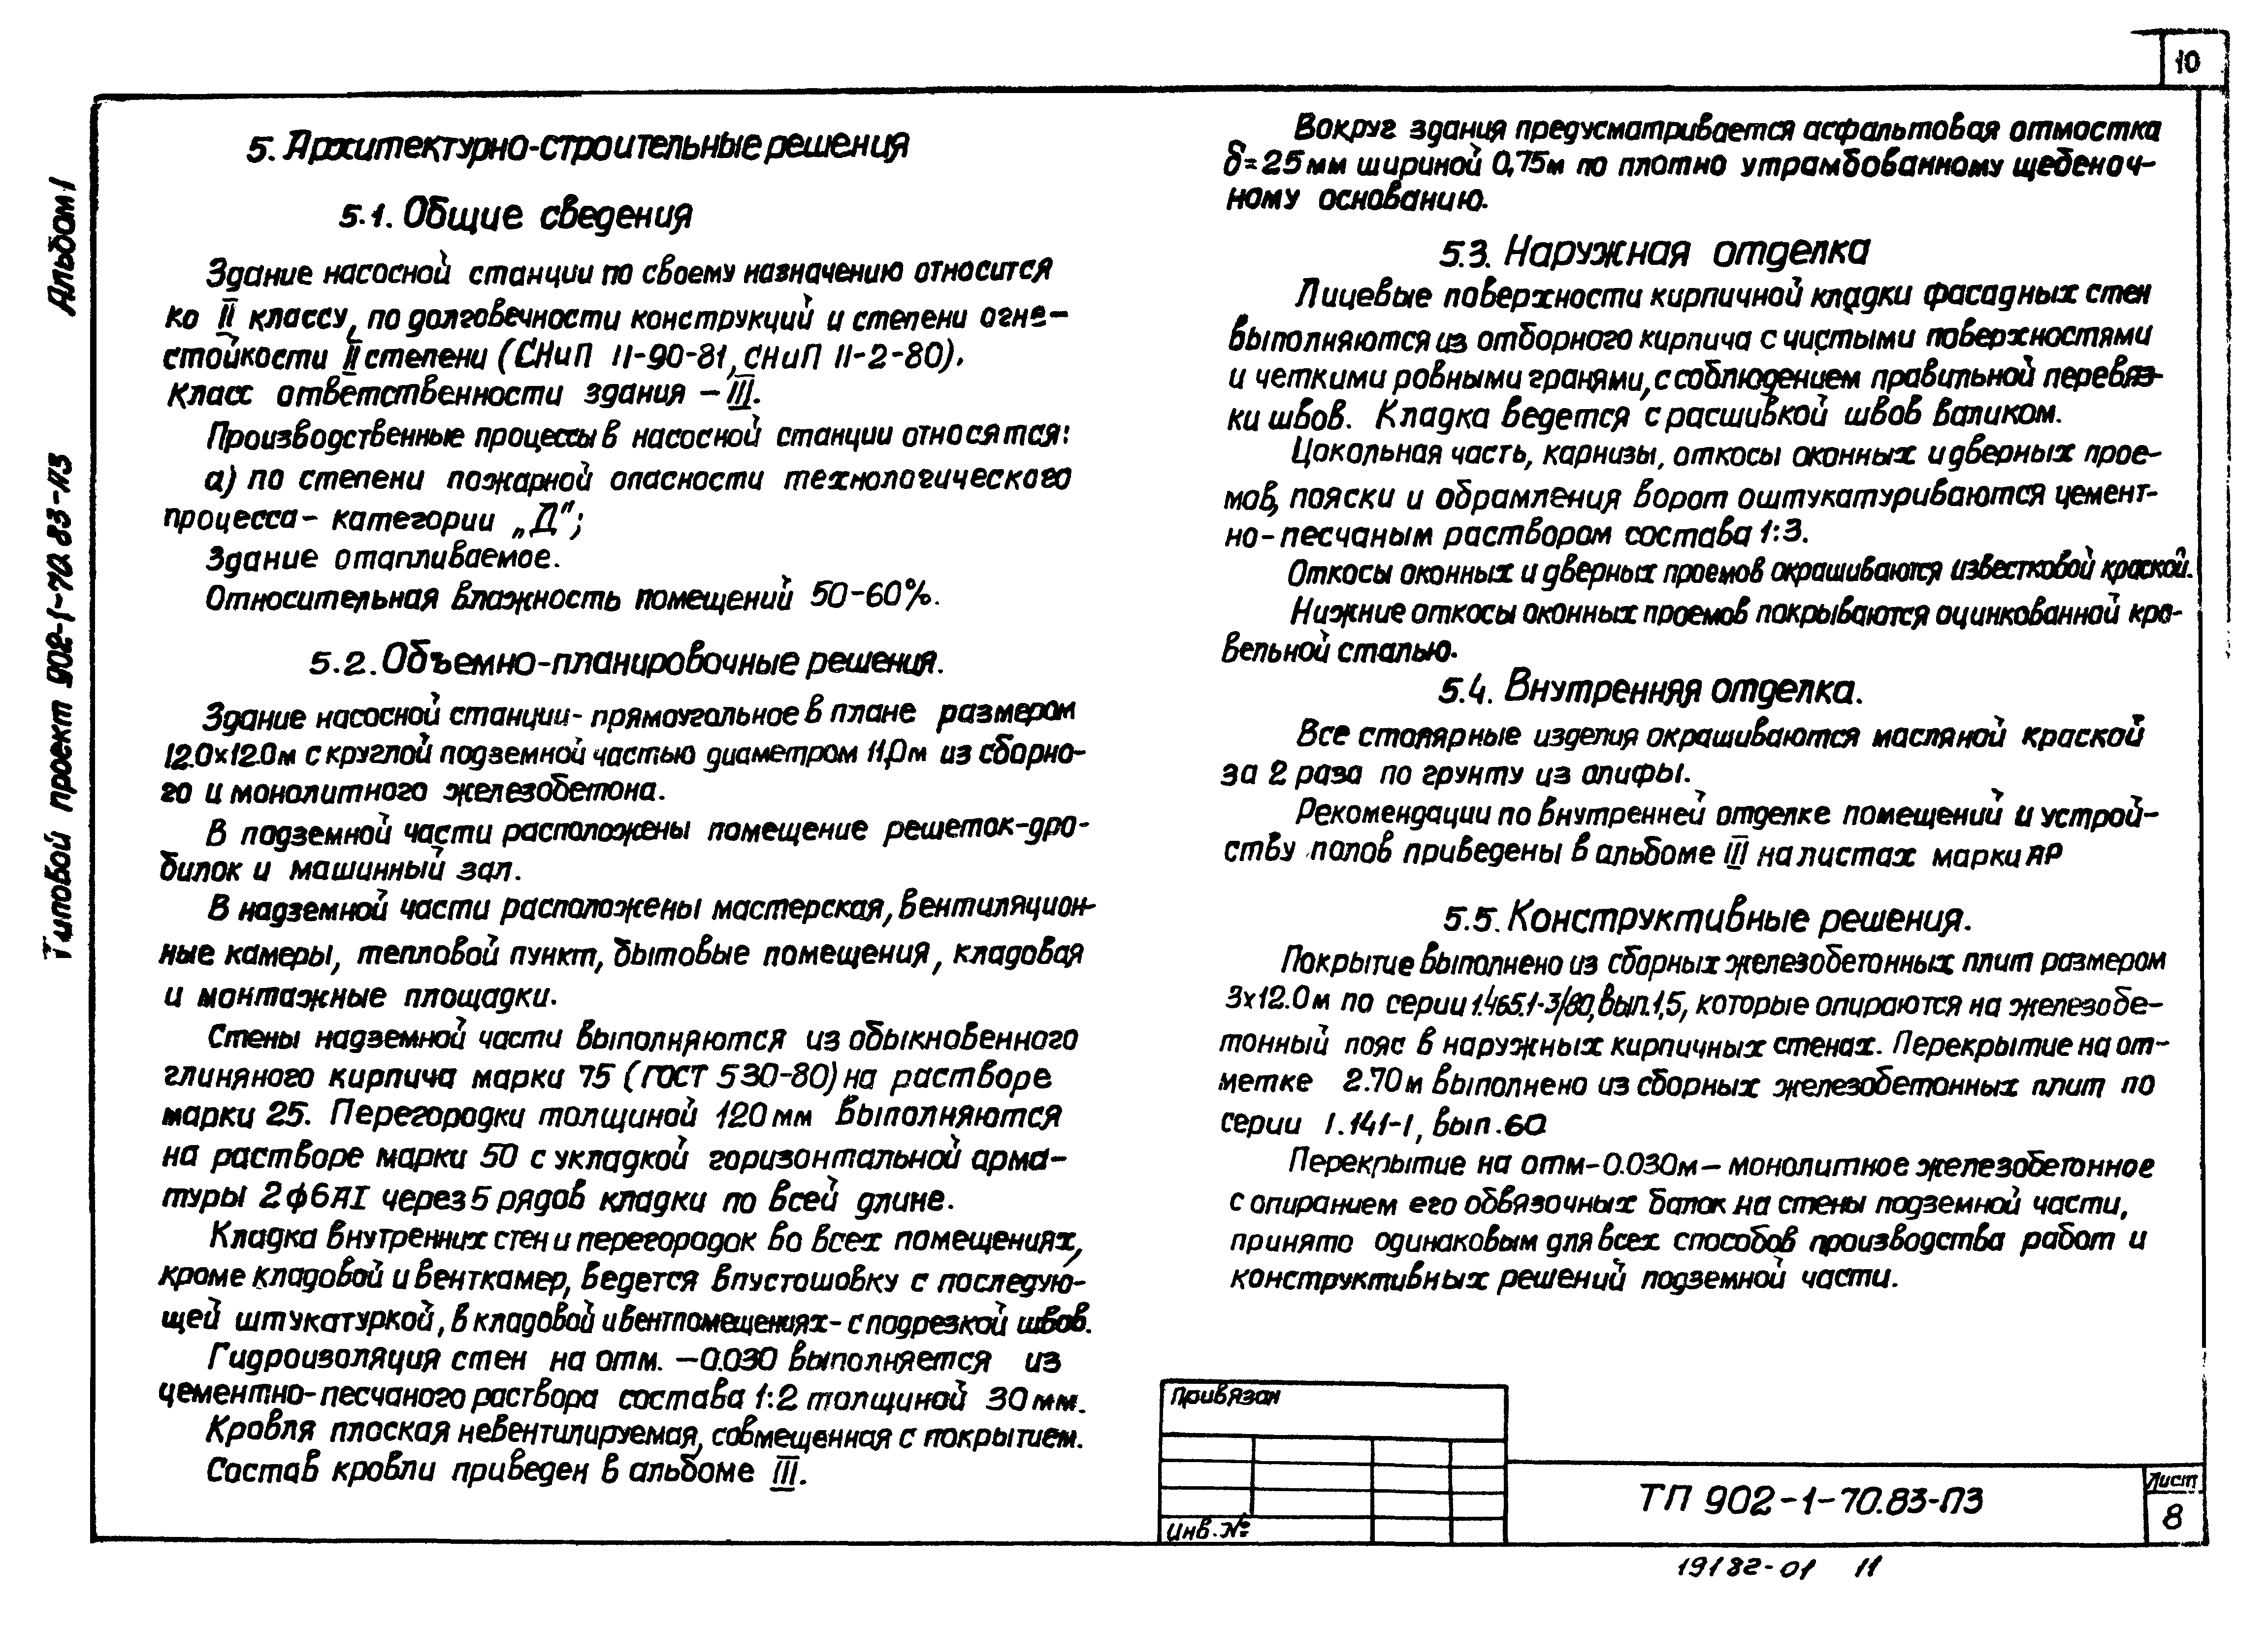 10
Альбом I
Типовой проект 902-1-70.83-ПЗ
5. Архитектурно-строительные решения
5.1. Общие сведения
Здание насосной станции по своему назначению относится
ко II классу, по долговечности конструкций и степени огне-
стойкости II степени (СНиП II-90-81, СНиП II-2-80).
Класс ответственности здания – III.
Производственные процессы в насосной станции относятся:
а) по степени пожарной опасности технологического
процесса – категории „Д“;
Здание отапливаемое.
Относительная влажность помещений 50-60%.
5.2. Объемно-планировочные решения.
Здание насосной станции- прямоугольное в плане размером
12.0х12.0м с круглой подземной частью диаметром 11,0м из сборно-
го и монолитного железобетона.
В подземной части расположены помещение решеток-дро-
билок и машинный зал.
В надземной части расположены мастерская, вентиляцион-
ные камеры, тепловой пункт, бытовые помещения, кладовая
и монтажные площадки.
Стены надземной части выполняются из обыкновенного
глиняного кирпича марки 75 (ГОСТ 530-80) на растворе
марки 25. Перегородки толщиной 120мм выполняются
на растворе марки 50 с укладкой горизонтальной арма-
туры 2ф6АI через 5 рядов кладки по всей длине.
Кладка внутренних стен и перегородок во всех помещениях,
кроме кладовой и венткамер, ведется впустошовку с последую-
щей штукатуркой, в кладовой и вентпомещениях- с подрезкой швов.
Гидроизоляция стен на отм. –0.030 выполняется из
цементно-песчаного раствора состава 1:2 толщиной 30мм.
Кровля плоская невентилируемая, совмещенная с покрытием.
Состав кровли приведен в альбоме III.
Вокруг здания предусматривается асфальтовая отмостка
δ=25мм шириной 0,75м по плотно утрамбованному щебеноч-
ному основанию.
5.3. Наружная отделка
Лицевые поверхности кирпичной кладки фасадных стен
выполняются из отборного кирпича с чистыми поверхностями
и четкими ровными гранями, с соблюдением правильной перевяз-
ки швов. Кладка ведется с расшивкой швов валиком.
Цокольная часть, карнизы, откосы оконных и дверных прое-
мов, пояски и обрамления ворот оштукатуриваются цемент-
но-песчаным раствором состава 1:3.
Откосы оконных и дверных проемов окрашиваются известковой краской.
Нижние откосы оконных проемов покрываются оцинкованной кро-
вельной сталью.
5.4. Внутренняя отделка.
Все столярные изделия окрашиваются масляной краской
за 2 раза по грунту из олифы.
Рекомендации по внутренней отделке помещений и устрой-
ству полов приведены в альбоме III на листах марки АР
5.5. Конструктивные решения.
Покрытие выполнено из сборных железобетонных плит размером
3х12.0м по серии 1.465.1-3/80, вып.1,5, которые опираются на железобе-
тонный пояс в наружных кирпичных стенах. Перекрытие на от-
метке 2.70м выполнено из сборных железобетонных плит по
серии 1.141-1, вып.60
Перекрытие на отм-0.030м – монолитное железобетонное
с опиранием его обвязочных балок на стены подземной части,
принято одинаковым для всех способов производства работ и
конструктивных решений подземной части.
Привязан
Инв.№
ТП 902-1-70.83-ПЗ
Лист
8
19182-01 11